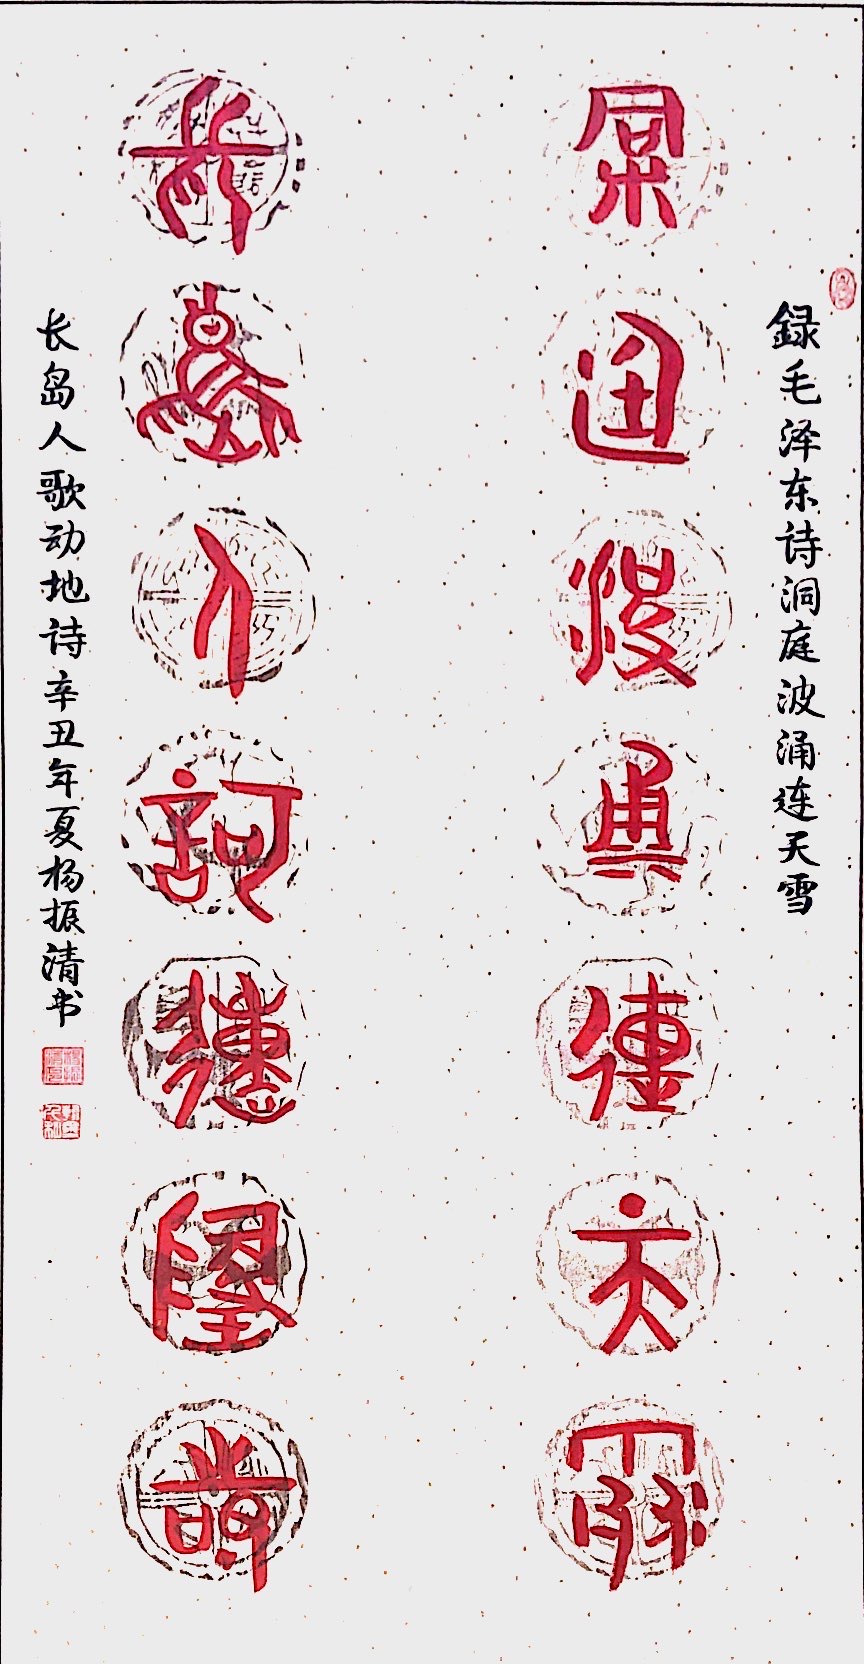 録毛泽东诗洞庭波涌连天雪
洞庭波涌连天雪
长岛人歌动地诗
长岛人歌动地诗辛丑年夏杨振清书